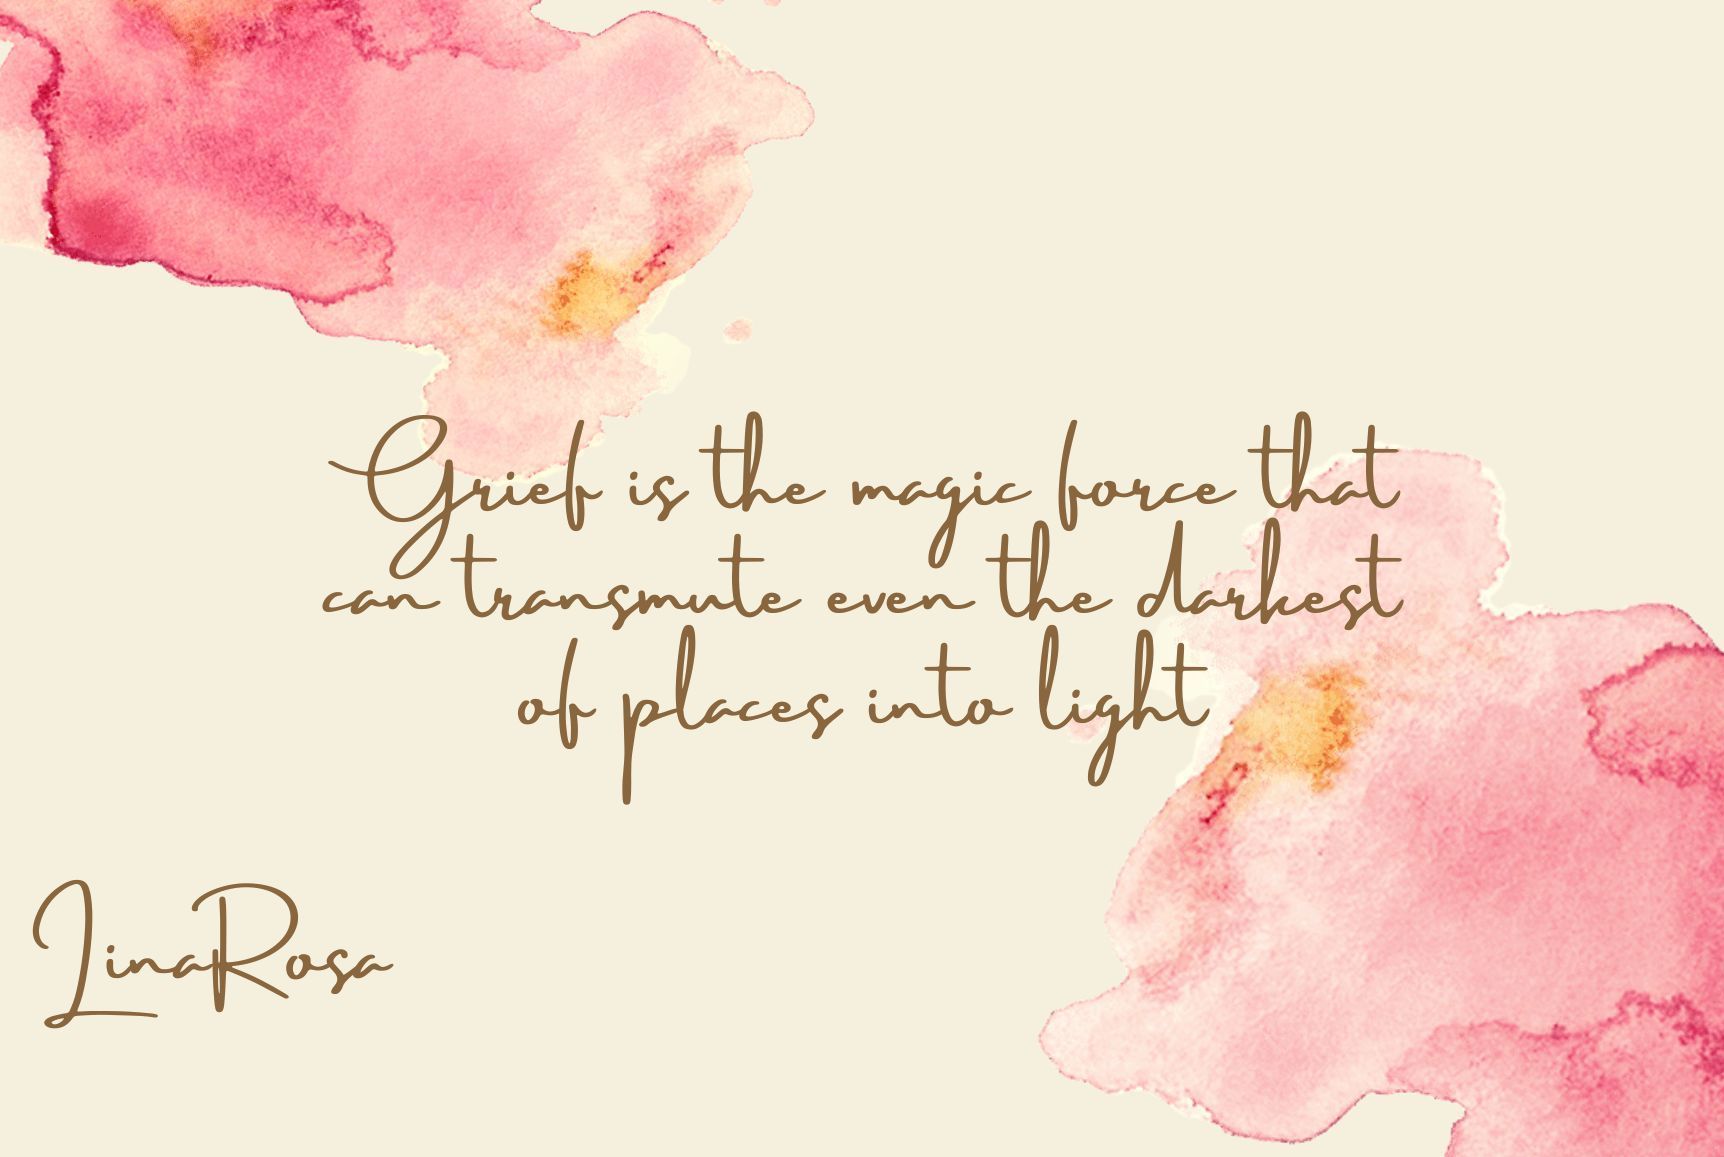 Grief is the magic force that
can transmute even the darkest
of places into light
LinaRosa